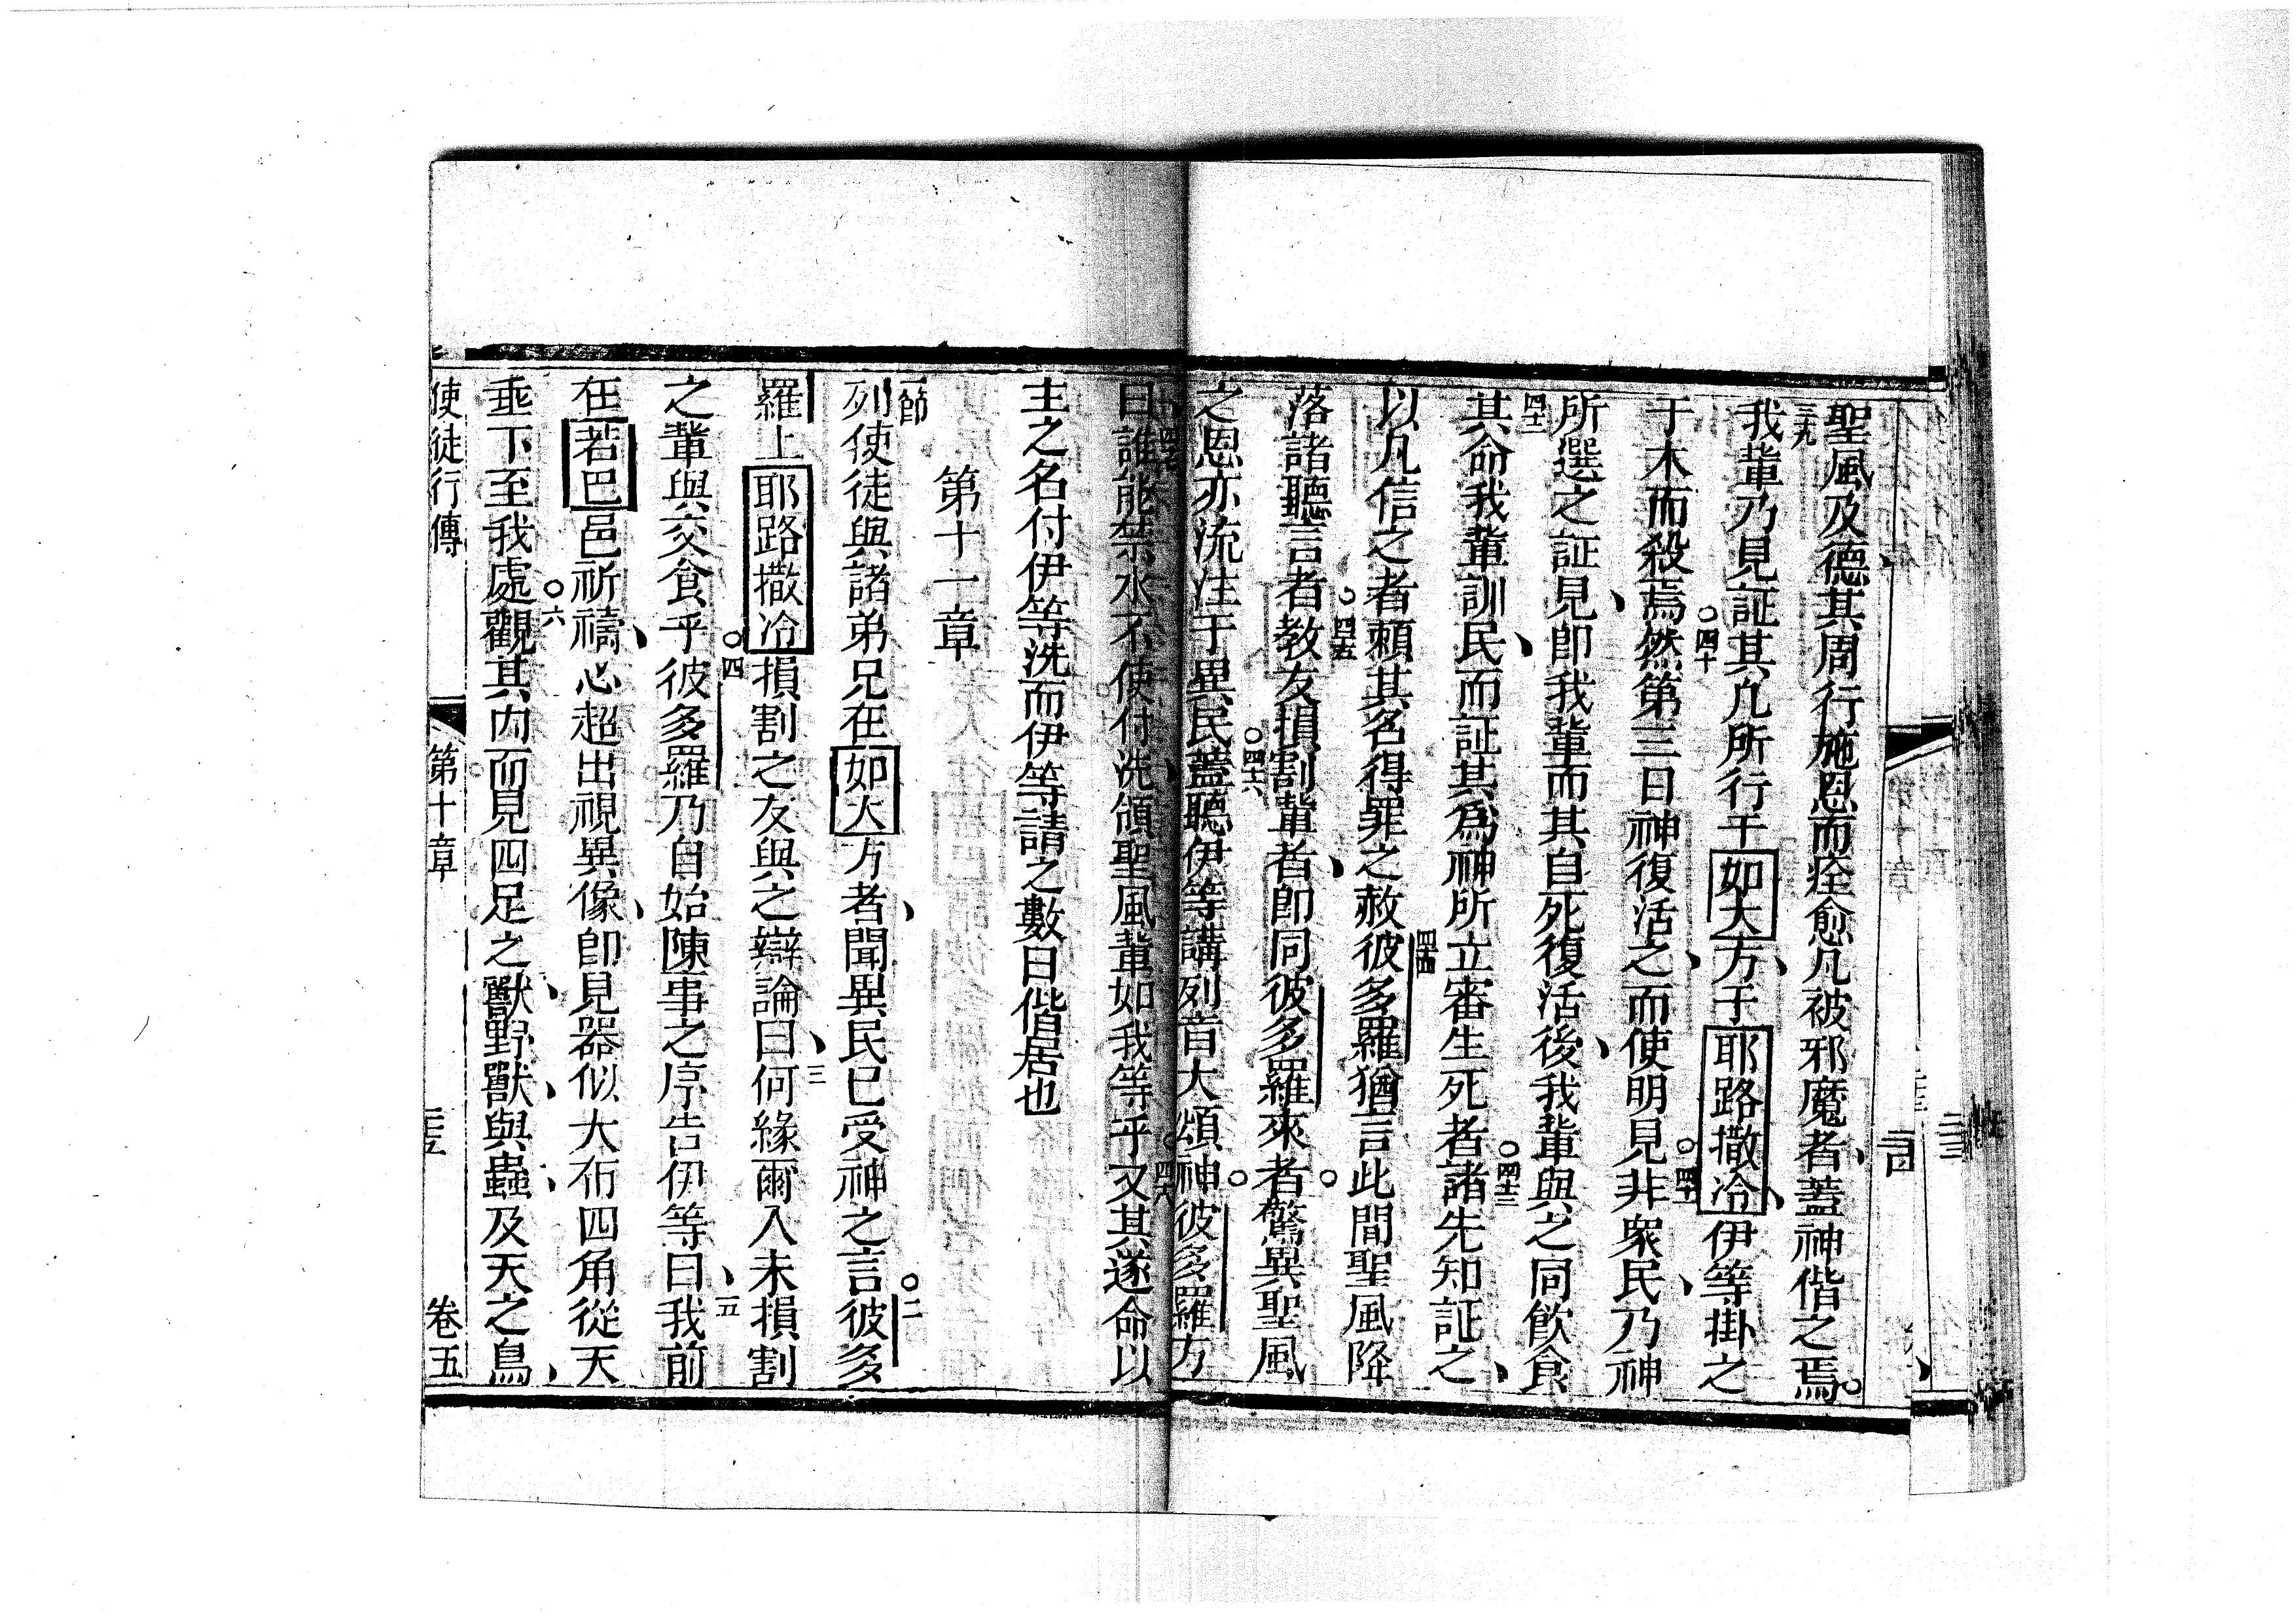 聖風及德、其周行施恩而痊愈凡被邪魔者、蓋神偕之焉。
三九我輩乃見証其凡所行于如大方、于耶路撒冷、伊等掛之
于木而殺焉。四十然第三日神復活之、而使明見。四一非衆民、乃神
所選之証見、卽我輩而其自死復活後、我輩與之同飲食
四二其命我輩訓民、而証其爲神所立審生死者。四三諸先知証之、
以凡信之者賴其名得罪之赦。四四彼多羅猶言此間聖風降
落諸聽言者。四五教友損割輩者、卽同彼多羅來者。驚異聖風
之恩亦流注于異民。四六蓋聽伊等講列音大頌神。彼多羅方
曰、四七誰能禁水不使付洗、領聖風輩如我等乎。四八又其遂命以
主之名付伊等洗而伊等請之數日偕居也
第十一章
一節列使徒與諸弟兄在如大方者、聞異民已受神之言。二彼多
羅上耶路撒冷損割之友與之辯論曰、三何緣爾入未損割
之輩與交食乎。四彼多羅乃自始陳事之序告伊等曰、五我前
在若巴邑祈禱、忽超出視異像、卽見器似大布四角從天
垂下至我處。六觀其內而見四足之獸、野獸、與蟲、及天之鳥、
使徒行傳 第十章 二五 卷五